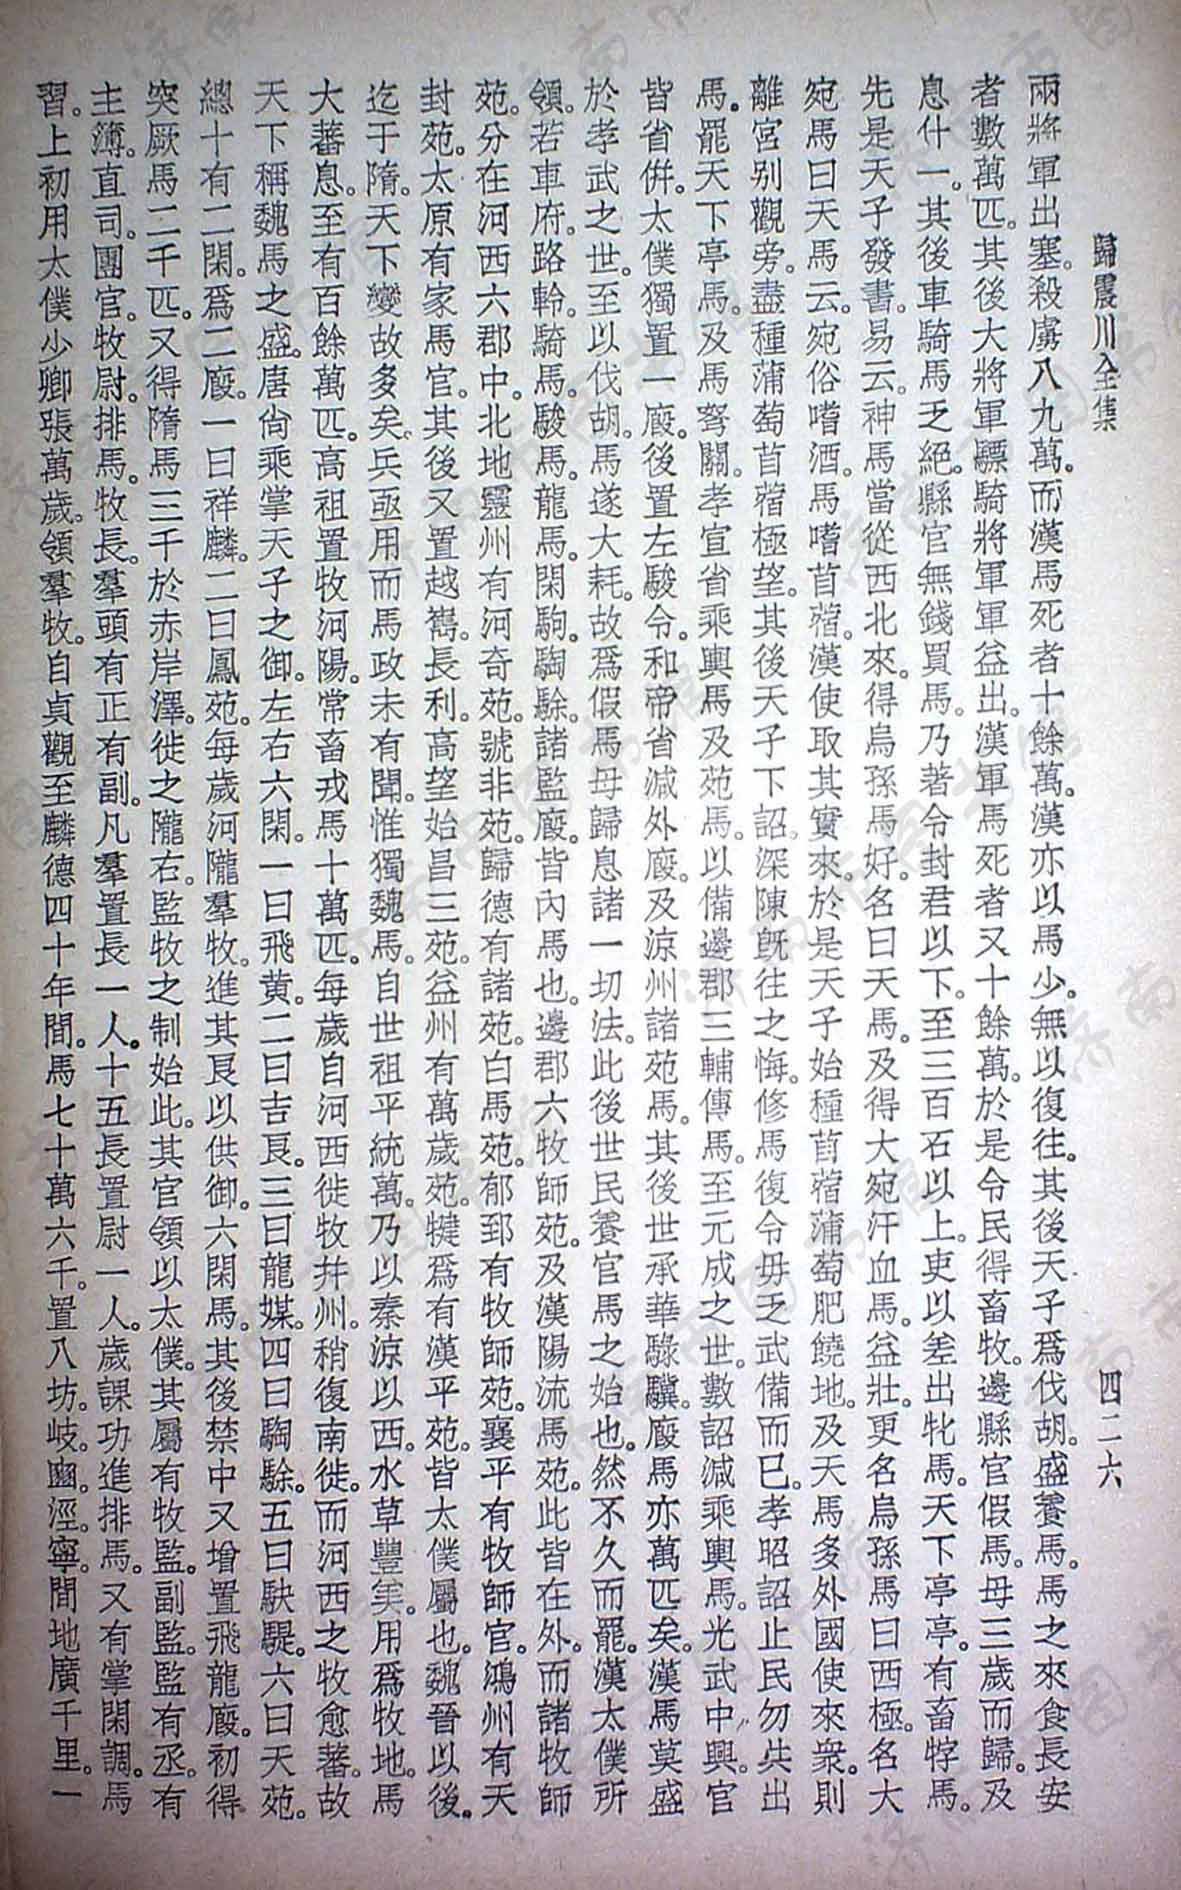 歸震川全集
四二六
兩將軍出塞。殺虜八九萬。而漢馬死者十餘萬。漢亦以馬少。無以復往。其後天子爲伐胡。盛養馬。馬之來食長安
者數萬匹。其後大將軍驃騎將軍軍益出。漢軍馬死者又十餘萬。於是令民得畜牧。邊縣官假馬。母三歲而歸。及
息什一。其後車騎馬乏絕。縣官無錢買馬。乃著令封君以下。至三百石以上。吏以差出牝馬。天下亭亭。有畜牸馬。
先是天子發書。易云。神馬當從西北來。得烏孫馬好。名曰天馬。及得大宛汗血馬。益壯。更名烏孫馬曰西極。名大
宛馬曰天馬云。宛俗嗜酒。馬嗜苜蓿。漢使取其實來。於是天子始種苜蓿蒲萄肥饒地。及天馬多外國使來衆。則
離宮别觀旁。盡種蒲萄苜蓿極望。其後天子下詔。深陳旣往之悔。修馬復令毋乏武備而已。孝昭詔止民勿共出
馬。罷天下亭馬。及馬弩關。孝宣省乘輿馬及苑馬。以備邊郡三輔傳馬。至元成之世。數詔減乘輿馬。光武中興。官
皆省併。太僕獨置一廄。後置左駿令。和帝省減外廄。及涼州諸苑馬。其後世承華騄驥。廄馬亦萬匹矣。漢馬莫盛
於孝武之世。至以伐胡。馬遂大耗。故爲假馬母歸息諸一切法。此後世民養官馬之始也。然不久而罷。漢太僕所
領。若車府。路軨。騎馬。駿馬。龍馬。閑駒。騊駼。諸監廄。皆內馬也。邊郡六牧師苑。及漢陽流馬苑。此皆在外。而諸牧師
苑。分在河西六郡中。北地靈州有河奇苑。號非苑。歸德有諸苑。白馬苑。郁郅有牧師苑。襄平有牧師官。鴻州有天
封苑。太原有家馬官。其後又置越巂。長利。高望始昌三苑。益州有萬歲苑。犍爲有漢平苑。皆太僕屬也。魏晉以後。
迄于隋。天下變故多矣。兵亟用而馬政未有聞。惟獨魏馬。自世祖平統萬。乃以秦涼以西。水草豐美。用爲牧地。馬
大蕃息。至有百餘萬匹。高祖置牧河陽。常畜戎馬十萬匹。每歲自河西徙牧幷州。稍復南徙。而河西之牧愈蕃。故
天下稱魏馬之盛。唐尙乘掌天子之御。左右六閑。一曰飛黃。二曰吉良。三曰龍媒。四曰騊駼。五曰駃騠。六曰天苑。
總十有二閑。爲二廄。一曰祥麟。二曰鳳苑。每歲河隴羣牧。進其良以供御。六閑馬。其後禁中又增置飛龍廄。初得
突厥馬二千匹。又得隋馬三千於赤岸澤。徙之隴右。監牧之制始此。其官領以太僕。其屬有牧監。副監。監有丞。有
主簿。直司。團官。牧尉。排馬。牧長。羣頭有正有副。凡羣置長一人。十五長置尉一人。歲課功進排馬。又有掌閑調。馬
習。上初用太僕少卿張萬歲。領羣牧。自貞觀至麟德四十年間。馬七十萬六千。置八坊。岐。豳。涇。寧。間地廣千里。一